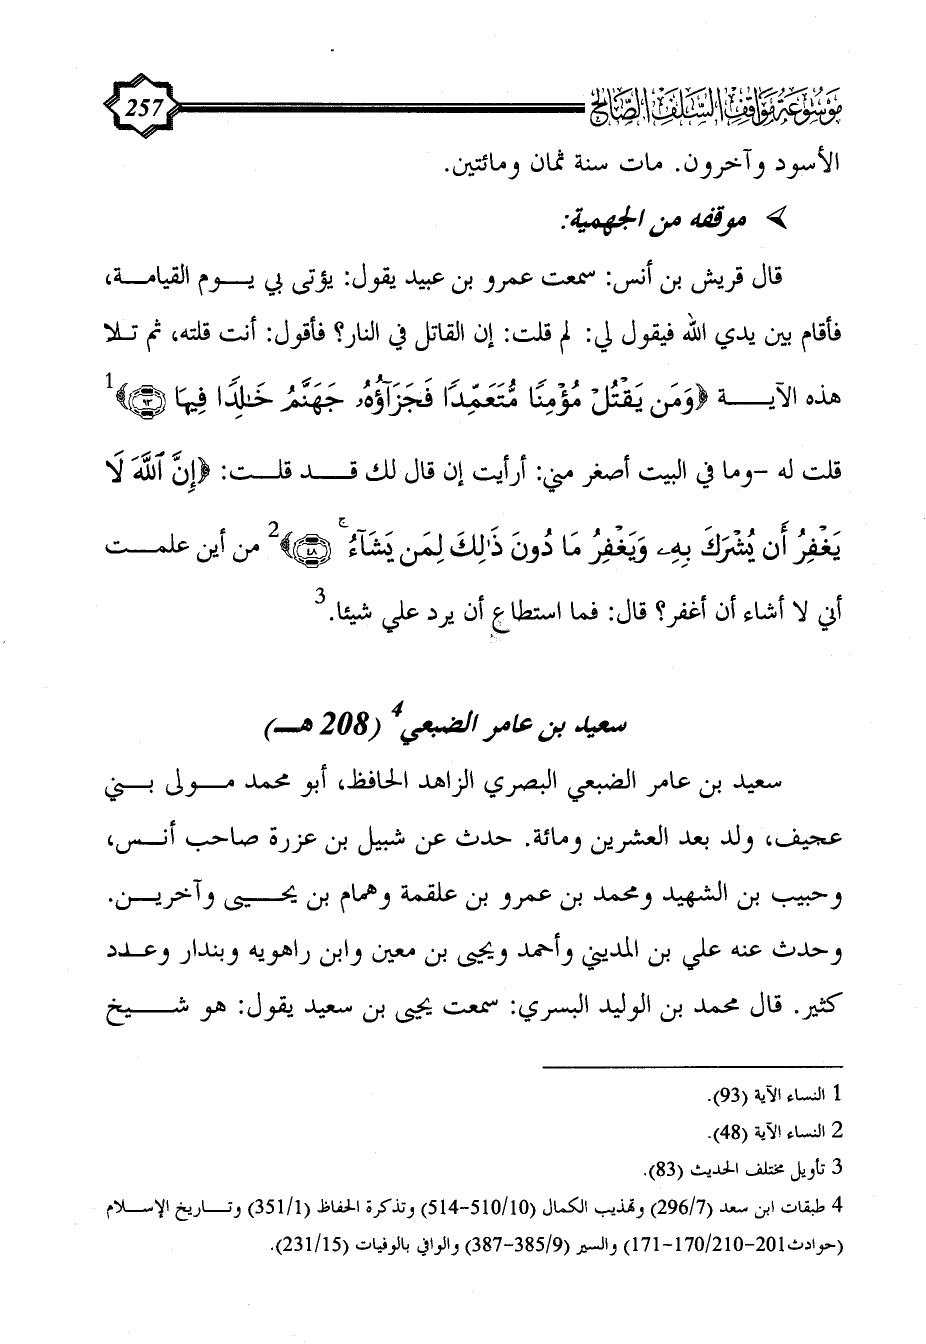 موسوعة مواقف السلف الصالح 257
الأسود وآخرون. مات سنة ثمان ومائتين.
موقفه من الجهمية:
قال قريش بن أنس: سمعت عمرو بن عبيد يقول: يؤتى بي يـــوم القيامـــة،
فأقام بين يدي الله فيقول لي: لم قلت: إن القاتل في النار؟ فأقول: أنت قلته، ثم تـــلا
هذه الآيـــــة ﴿وَمَن يَقْتُلْ مُؤْمِنًا مُّتَعَمِّدًا فَجَزَآؤُهُۥ جَهَنَّمُ خَٰلِدًا فِيهَا ٩٣﴾1
قلت له -وما في البيت أصغر مني: أرأيت إن قال لك قـــد قلـــت: ﴿إِنَّ ٱللَّهَ لَا
يَغْفِرُ أَن يُشْرَكَ بِهِۦ وَيَغْفِرُ مَا دُونَ ذَٰلِكَ لِمَن يَشَآءُ ۚ ٤٨﴾2 من أين علمـــت
أني لا أشاء أن أغفر؟ قال: فما استطاع أن يرد علي شيئا.3
سعيد بن عامر الضبعي4 (208 هـــ)
سعيد بن عامر الضبعي البصري الزاهد الحافظ، أبو محمد مـــولى بـــني
عجيف، ولد بعد العشرين ومائة. حدث عن شبيل بن عزرة صاحب أنـــس،
وحبيب بن الشهيد ومحمد بن عمرو بن علقمة وهمام بن يحـــيى وآخريـــن.
وحدث عنه علي بن المديني وأحمد ويحيى بن معين وابن راهويه وبندار وعـــدد
كثير. قال محمد بن الوليد البسري: سمعت يحيى بن سعيد يقول: هو شـــيخ
1 النساء الآية (93).
2 النساء الآية (48).
3 تأويل مختلف الحديث (83).
4 طبقات ابن سعد (296/7) وتهذيب الكمال (510/10-514) وتذكرة الحفاظ (351/1) وتـــاريخ الإســـلام
(حوادث201-170/210-171) والسير (385/9-387) والوافي بالوفيات (231/15).